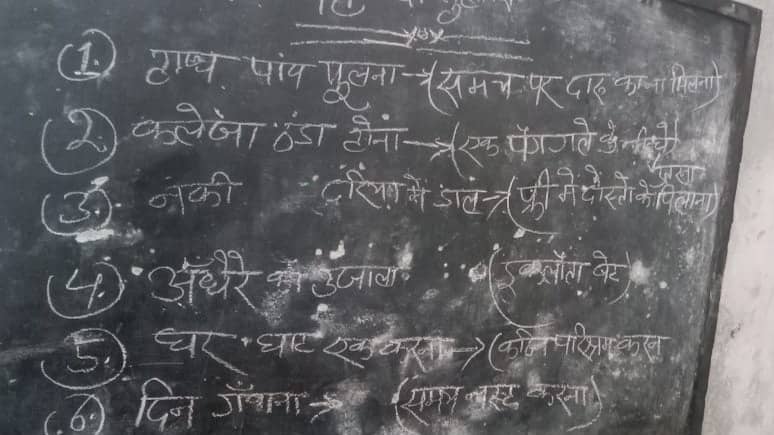 ① हाथ पांव फूलना → (समय पर दारू का ना मिलना)
②. कलेजा ठंडा होना → (एक पैग गले के नीचे
③. नेकी दरिया में डाल → (फ्री में दोस्तो को पिलाना)
④. अँधेरे का उजाला (इकलौता बेटा)
⑤. घर घाट एक करना → (कठिन परिश्रम करना
⑥. दिन गँवाना → (समय नस्ट करना)